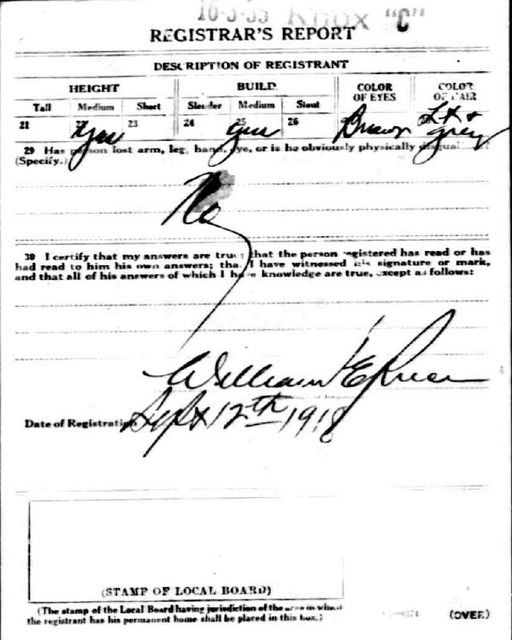 16-3-35 Knox "C"
REGISTRAR'S REPORT
DESCRIPTION OF REGISTRANT
HEIGHT BUILD COLOR OF EYES COLOR OF HAIR
Tall Medium Short Slender Medium Stout
21 22 yes 23 24 25 yes 26 Brown Lt & grey
29 Has person lost arm, leg, hand, eye, or is he obviously physically disqualified?
(Specify.)
No
30 I certify that my answers are true; that the person registered has read or has
had read to him his own answers; that I have witnessed his signature or mark,
and that all of his answers of which I have knowledge are true, except as follows:
William E
Date of Registration Sept 12th 1918
(STAMP OF LOCAL BOARD)
(The stamp of the Local Board having jurisdiction of the area in which
the registrant has his permanent home shall be placed in this box.)
(OVER)